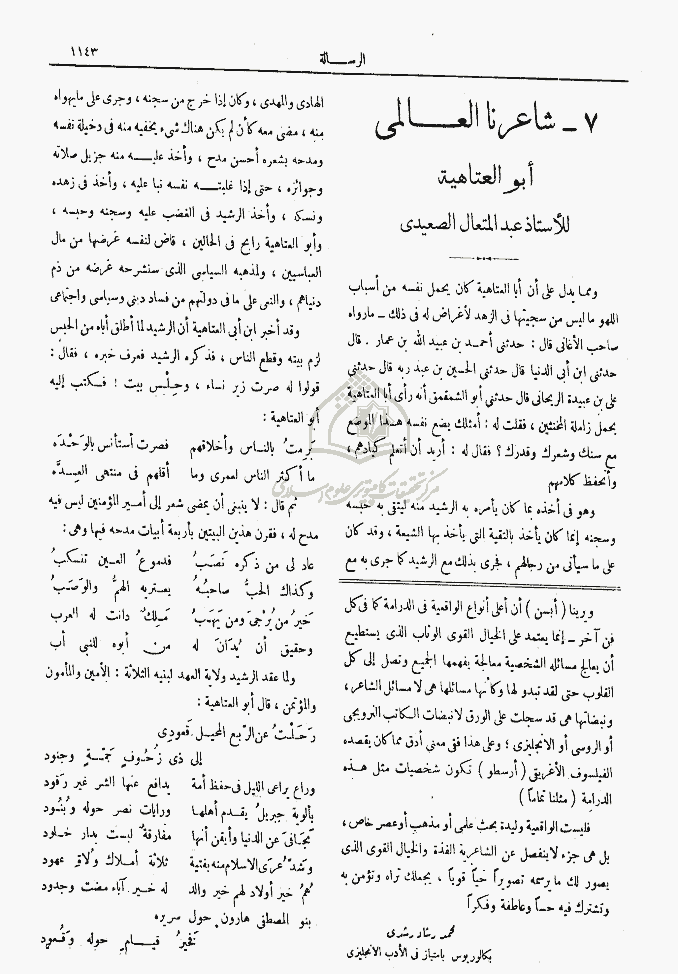 الرسالة
١١٤٣
٧ ـ شاعرنا العالمى
أبو العتاهية
للأستاذ عبد المتعال الصعيدى
ومما يدل على أن أبا العتاهية كان يحمل نفسه من أسباب
اللهو ما ليس من سجيتها فى الزهد لأغراض له فى ذلك ـ مارواه
صاحب الأغانى قال : حدثنى أحمد بن عبيد الله بن عمار . قال
حدثنى ابن أبى الدنيا قال حدثنى الحسين بن عبد ربه قال حدثنى
على بن عبيدة الريحانى قال حدثنى أبو الشمقمق أنه رأى أبا العتاهية
يحمل زاملة المخنثين ، فقلت له : أمثلك يضع نفسه هذا الموضع
مع سنك وشعرك وقدرك ؟ فقال له : أريد أن أتعلم كيادهم ،
وأتحفظ كلامهم
وهو فى أخذه بما كان يأمره به الرشيد منه ليتقى به حبسه
وسجنه إنما كان يأخذ بالتقية التى يأخذ بها الشيعة ، وقد كان
على ما سيأتى من رجالهم ، فجرى بذلك مع الرشيد كما جرى به مع
ويرينا ( أبسن ) أن أعلى أنواع الواقعية فى الدرامة كما فى كل
فن آخر ـ إنما يعتمد على الخيال القوى الوثاب الذى يستطيع
أن يعالج مسائله الشخصية معالجة يفهمها الجميع وتصل إلى كل
القلوب حتى لقد تبدو لها وكأنها مسائلها هى لا مسائل الشاعر ،
ونبضاتها هى قد سجلت على الورق لا نبضات الكاتب النرويجى
أو الروسى أو الانجليزى ؛ وعلى هذا ففى معنى أدق مما كان يقصده
الفيلسوف الأغريقى ( أرسطو ) تكون شخصيات مثل هذه
الدرامة ( مثلنا تماماً )
فليست الواقعية وليدة بحث علمى أو مذهب أو عصر خاص ،
بل هى جزء لا ينفصل عن الشاعرية الفذة والخيال القوى الذى
يصور لك ما يرسمه تصويراً حياً قوياً ، يجعلك تراه وتؤمن به
وتشترك فيه حساً وعاطفة وفكراً
محمد رشاد رشدى
بكالوريوس بامتياز فى الأدب الانجليزى
الهادى والمهدى ، وكان إذا خرج من سجنه ، وجرى على ما يهواه
منه ، مضى معه كأن لم يكن هناك شىء يخفيه منه فى دخيلة نفسه
ومدحه بشعره أحسن مدح ، وأخذ عليه منه جزيل صلاته
وجوائزه ، حتى إذا غلبته نفسه نبا عليه ، وأخذ فى زهده
ونسكه ، وأخذ الرشيد فى الغضب عليه وسجنه وحبسه ،
وأبو العتاهية رابح فى الحالين ، قاض لنفسه غرضها من مال
العباسيين ، ولمذهبه السياسى الذى سنشرحه غرضه من ذم
دنياهم ، والنعى على ما فى دولتهم من فساد دينى وسياسى واجتماعى
وقد أخبر ابن أبى العتاهية أن الرشيد لما أطلق أباه من الحبس
لزم بيته وقطع الناس ، فذكره الرشيد فعرف خبره ، فقال :
قولوا له صرت زير نساء ، وحِلْس بيت ! فكتب إليه
أبو العتاهية :
بَرِمتُ بالناس وأخلاقهم فصرت أستأنس بالوَحْدَه
ما أكثر الناس لعمرى وما أقلهم فى منتهى العِدَّه
ثم قال : لا ينبغى أن يمضى شعر إلى أمير المؤمنين ليس فيه
مدح له ، فقرن هذين البيتين بأربعة أبيات مدحه فيها وهى :
عاد لى من ذكره نَصَبُ فدموعُ العين تنسكبُ
وكذاك الحبُّ صاحبُهُ يعتريه الهمُّ والوَصَبُ
خيرُ من يُرْجَى ومن يَهَبُ مَلِكٌ دانت له العرب
وحقيق أن يُدَانَ له من أبوه للنبى أب
ولما عقد الرشيد ولاية العهد لبنيه الثلاثة : الأمين والمأمون
والمؤتمن ، قال أبو العتاهية :
رَحَلْتُ عن الرَّبع المحيل قَعودى
إلى ذى زُحُوفٍ جَمَّةٍ وجنود
وراعٍ يراعى الليل فى حفظ أمة يدافع عنها الشر غير رَقود
بألوية جبريلُ يقدم أهلها ورايات نصر حوله وبُنُود
تجَافَى عن الدنيا وأيقن أنها مفارقةٌ ليست بدار خلود
وشدَّ عُرَى الاسلام منه بفتية ثلاثة أملاك ولاة عهود
هُمُ خير أولاد لهم خير والد له خير آباء مضت وجدود
بنو المصطفى هارون حول سريره
فخيرُ قيام حوله وقُعود
مركز تحقيقات كامپيوترى علوم اسلامى